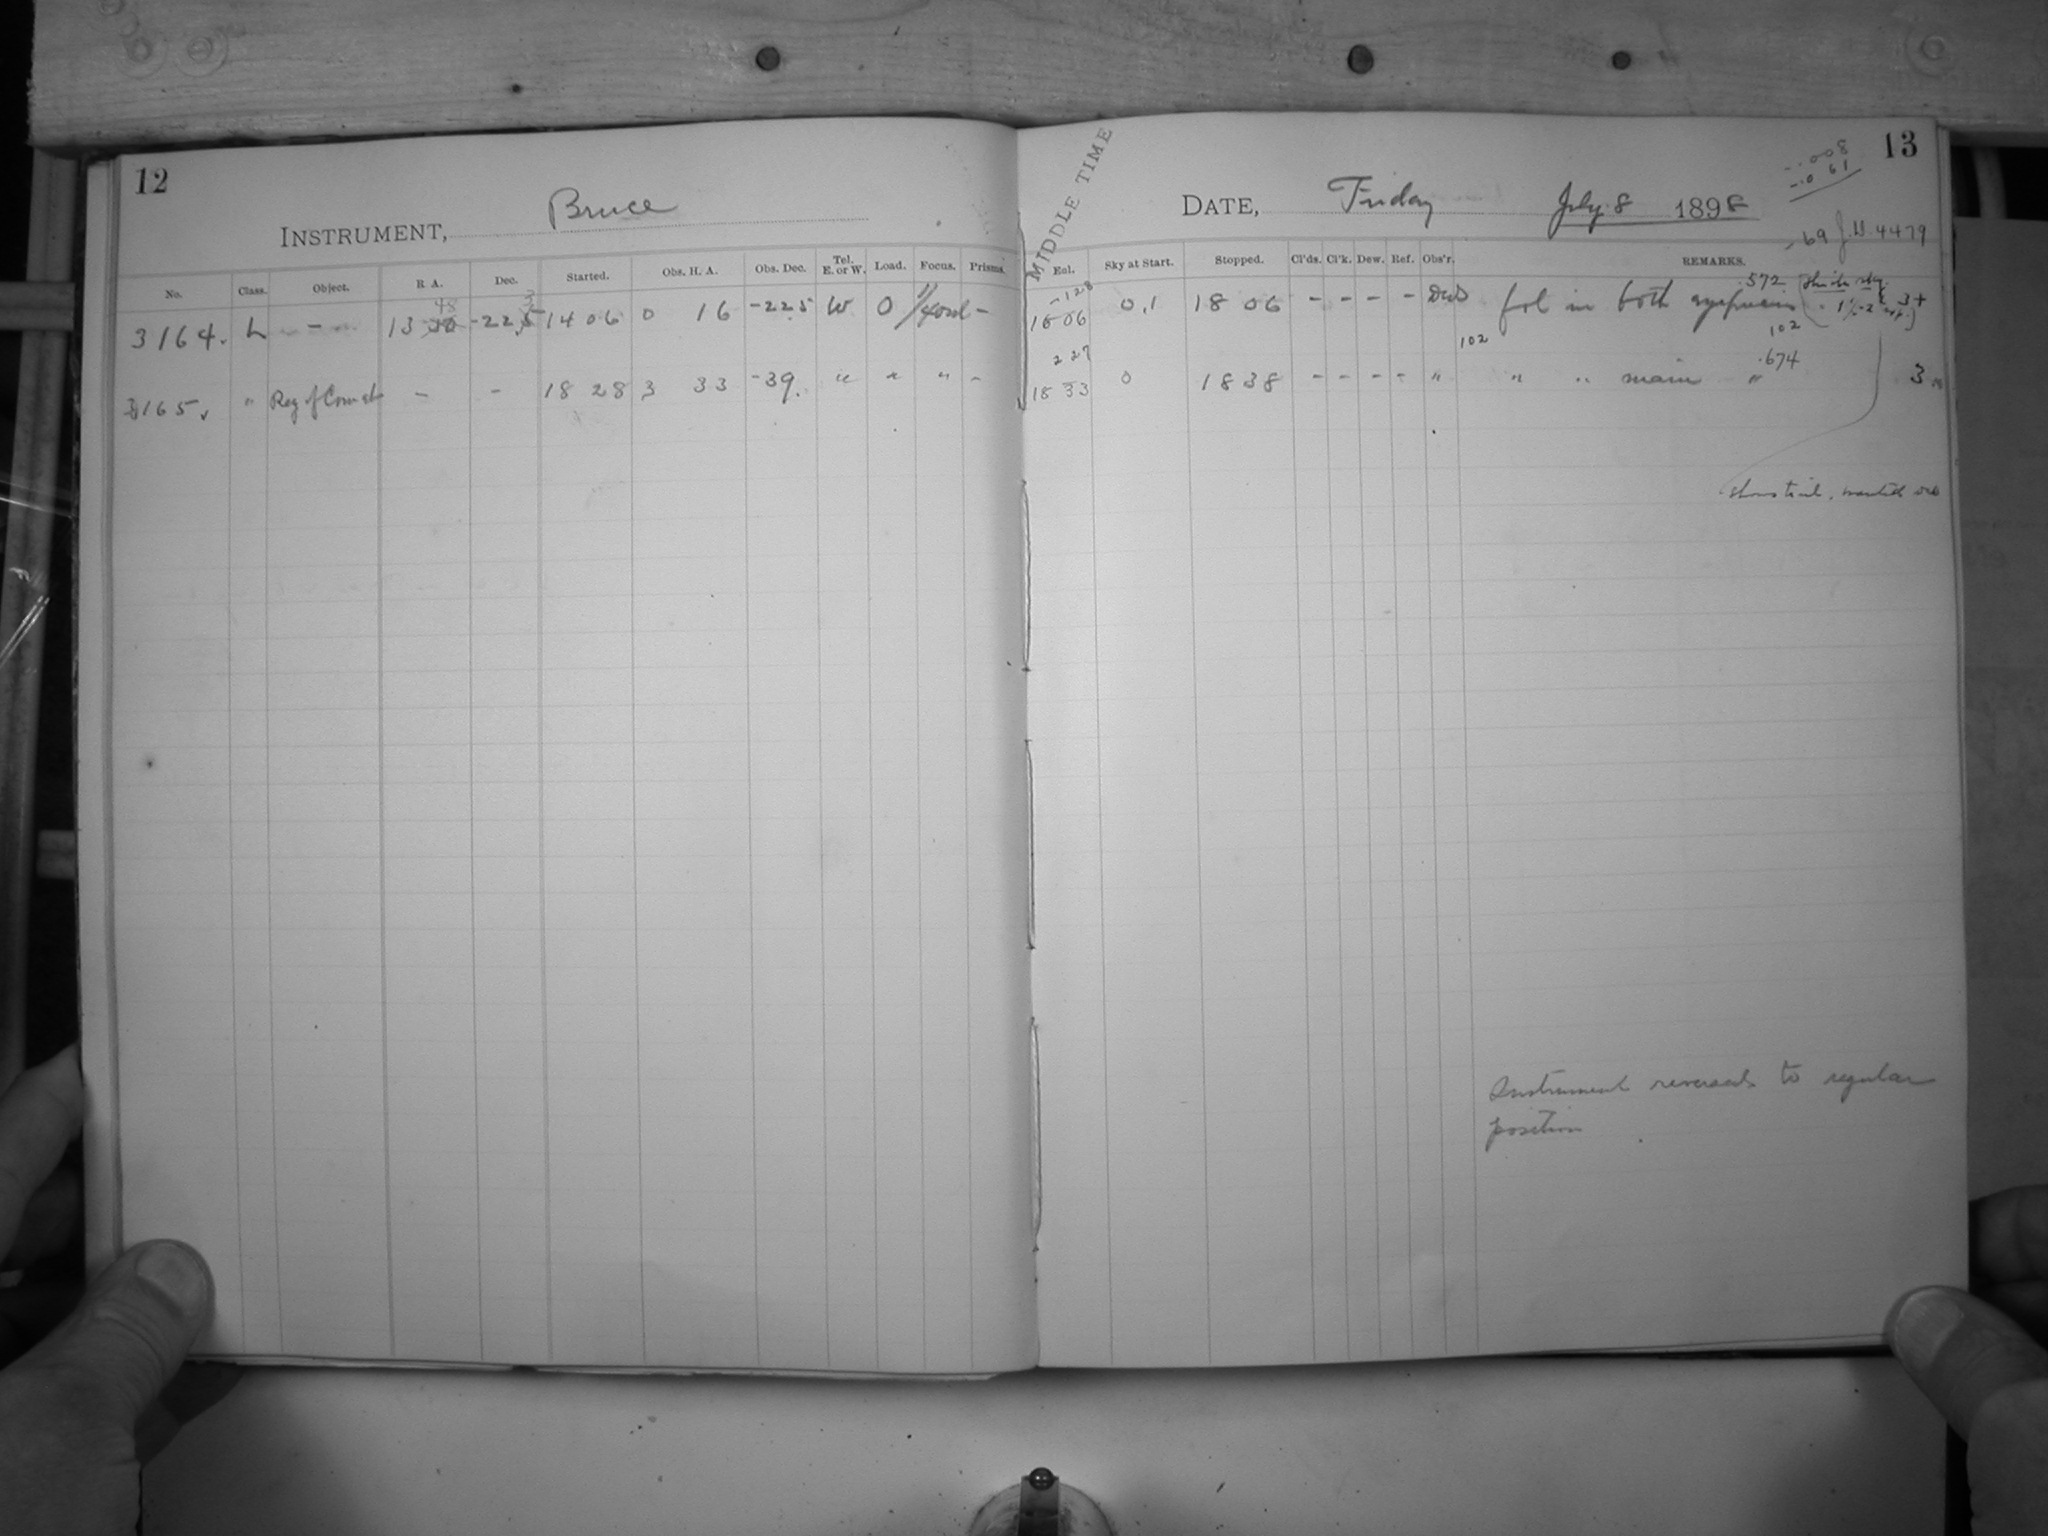 12
INSTRUMENT, Bruce
No. Class. Object. R. A. Dec. Started. Obs. H. A. Obs. Dec. Tel. E. or W. Load. Focus. Prisms.
48 3
3164. L - 13 -22.5 14 06 0 16 -22.5 W 0 -
3165. " Reg of Comet - - 18 28 3 33 -39. " " " -
13
MIDDLE TIME
-.008
-.061
DATE, Friday July 8 1898
-69 J.D. 4479
Eol. Sky at Start. Stopped. Cl'ds. Cl'k. Dew. Ref. Obs'r. REMARKS.
-128 .572
16 06 0,1 18 06 - - - - fol in both eyepieces 3+
227 102 102 .674
18 33 0 18 38 - - - - " " " main " 3
shows trail.
Instrument reversed to regular
position